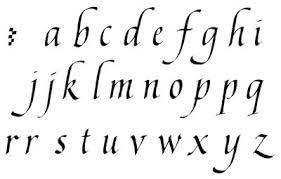 a b c d e f g h i
j j k l m n o p p q
r r s t u v w x y z